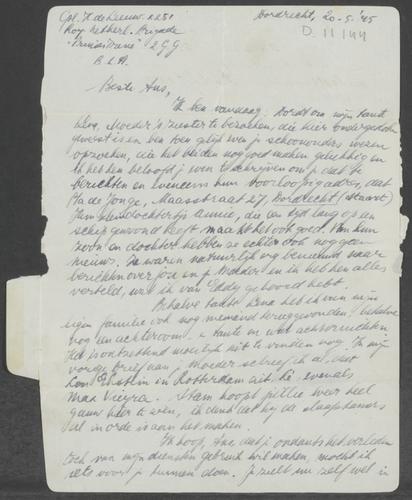 Cpl. H. de Leeuw. 2251
Dordrecht, 20-5-'45
Roy. Netherl. Brigade
D. 11144
"Prinses Irene" 2 G G
B.L.A.
Beste Ans,
Ik ben vandaag in Dordt om mijn tante
Lena, Moeder's zuster te bezoeken, die hier ondergedoken
geweest is en ben toen gelijk even je schoonouders wezen
opzoeken, die het beiden nog goed maken gelukkig en
ik heb hen beloofd je even te schrijven om je dat te
berichten en eveneens hun voorloopig adres, dat
p/a de Jonge, Maasstraat 27, Dordrecht (Staart)
Hun schoondochtertje Annie, die een tijd lang op een
schip gewoond heeft, maakt het ook goed. Van hun
zoon en dochter hebben ze echter ook nog geen
nieuws. Ze waren natuurlijk erg benieuwd naar
berichten over jou en je en ik heb hen alles
verteld, wat ik van Eddy gehoord heb.
Behalve tante Lena heb ik van mijn
eigen familie ook nog niemand teruggevonden, behalve
nog een achteroom en tante en wat achternichten.
Het is ontzettend moeilijk uit te vinden nog. In mijn
vorige brief aan je Moeder schreef ik al, dat
in Rotterdam zit, evenals
Max Viegra. Stam hoopt jullie weer heel
gauw hier te zien, ik denk dat hij de slaapkamers
al in orde is aan het maken.
Ik hoop, Ans dat je ondanks het verleden
toch van mijn diensten gebruik wil maken, mocht ik
iets voor je kunnen doen. Je zult nu zelf wel in